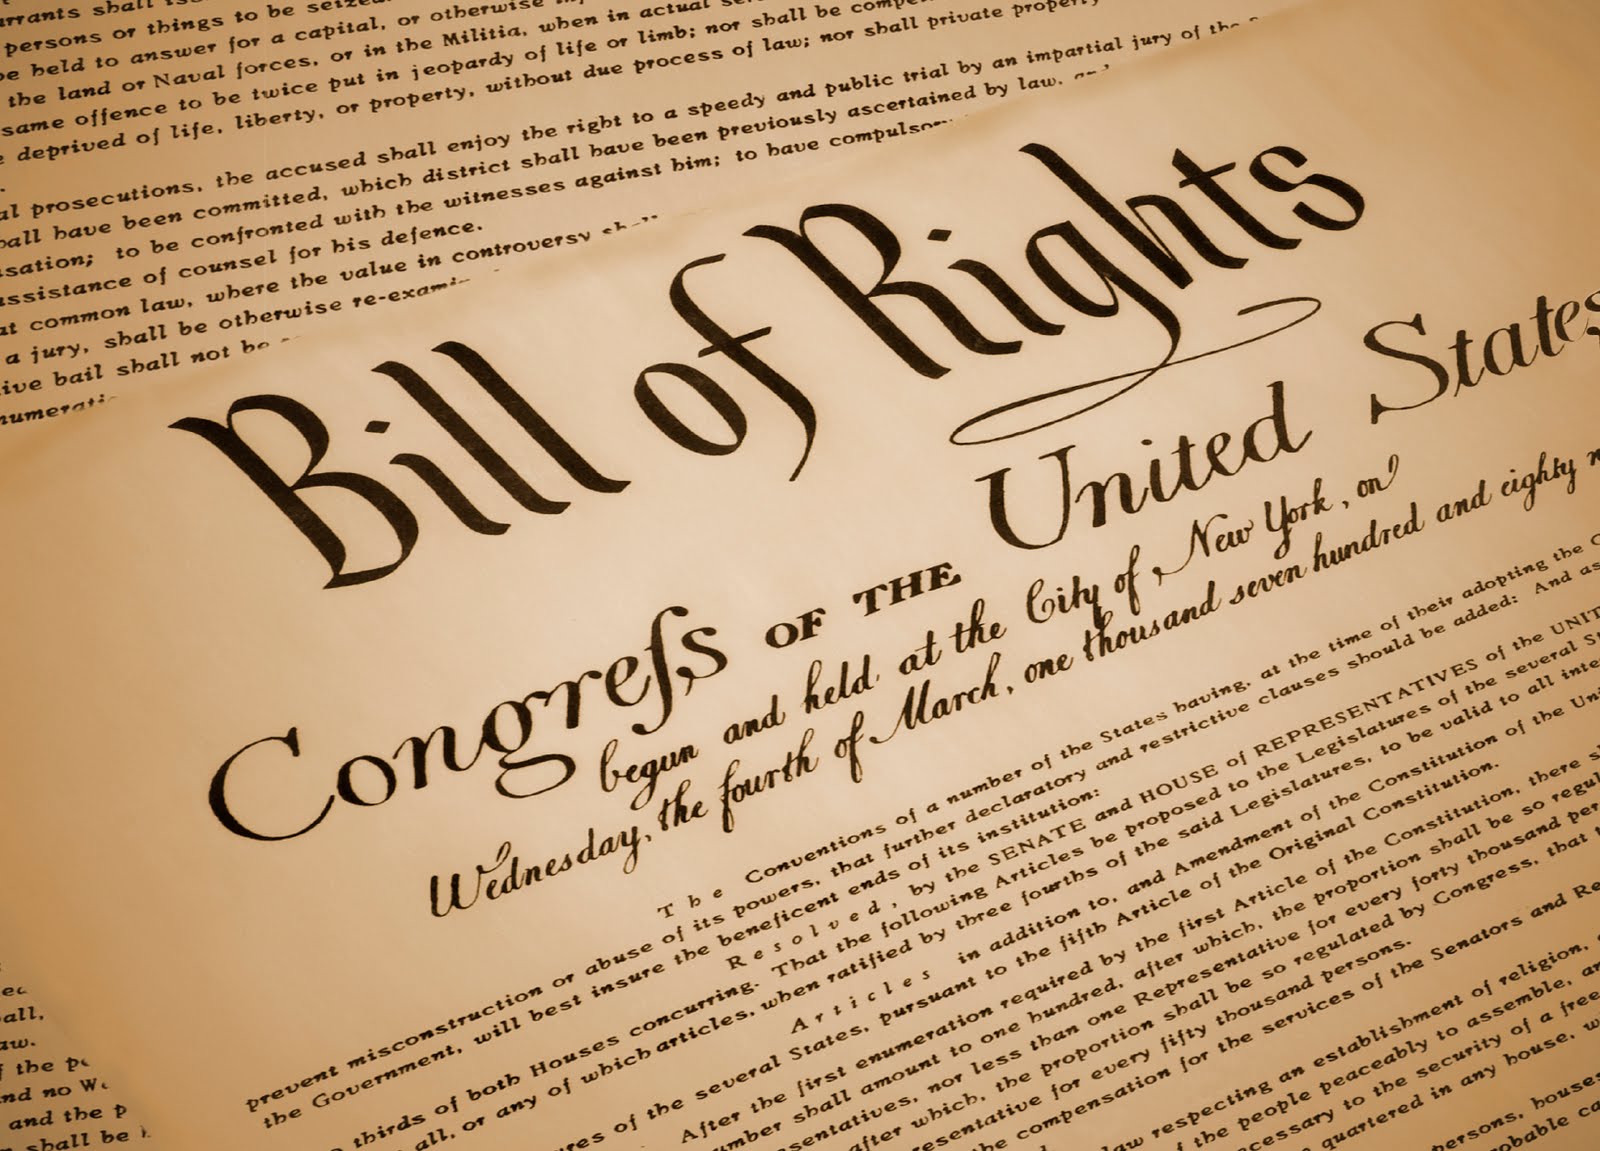 shall
persons or things to be seized
be held to answer for a capital, or otherwise
the land or Naval forces, or in the Militia, when in actual
same offence to be twice put in jeopardy of life or limb; nor shall be
deprived of life, liberty, or property, without due process of law; nor shall private property
prosecutions, the accused shall enjoy the right to a speedy and public trial by an impartial jury of the
have been committed, which district shall have been previously ascertained by law, and
to be confronted with the witnesses against him; to have
assistance of counsel for his defence.
at common law, where the value in controversy
a jury, shall be otherwise
bail shall not be
Bill of Rights
Congreſs OF THE United States
begun and held at the City of New York, on
Wednesday, the fourth of March, one thousand seven hundred and eighty
The Conventions of a number of the States having, at the time of their adopting the
prevent misconstruction or abuse of its powers, that further declaratory and restrictive clauses should be added: And as
the Government, will best insure the beneficent ends of its institution:
Resolved, by the SENATE and HOUSE of REPRESENTATIVES of the
thirds of both Houses concurring. That the following Articles be proposed to the Legislatures of the several
all, or any of which articles, when ratified by three fourths of the said Legislatures, to be valid to all
Articles in addition to, and Amendment of the Constitution of the
of the several States, pursuant to the fifth Article of the Original Constitution.
After the first enumeration required by the first Article of the Constitution, there
shall amount to one hundred, after which, the proportion shall be so
nor less than one Representative for every forty thousand
after which, the proportion shall be so regulated by Congress, that
for every fifty thousand persons.
the compensation for the services of the Senators and
law respecting an establishment of religion,
of the people peaceably to assemble,
to the security of a free
quartered in any house,
persons,